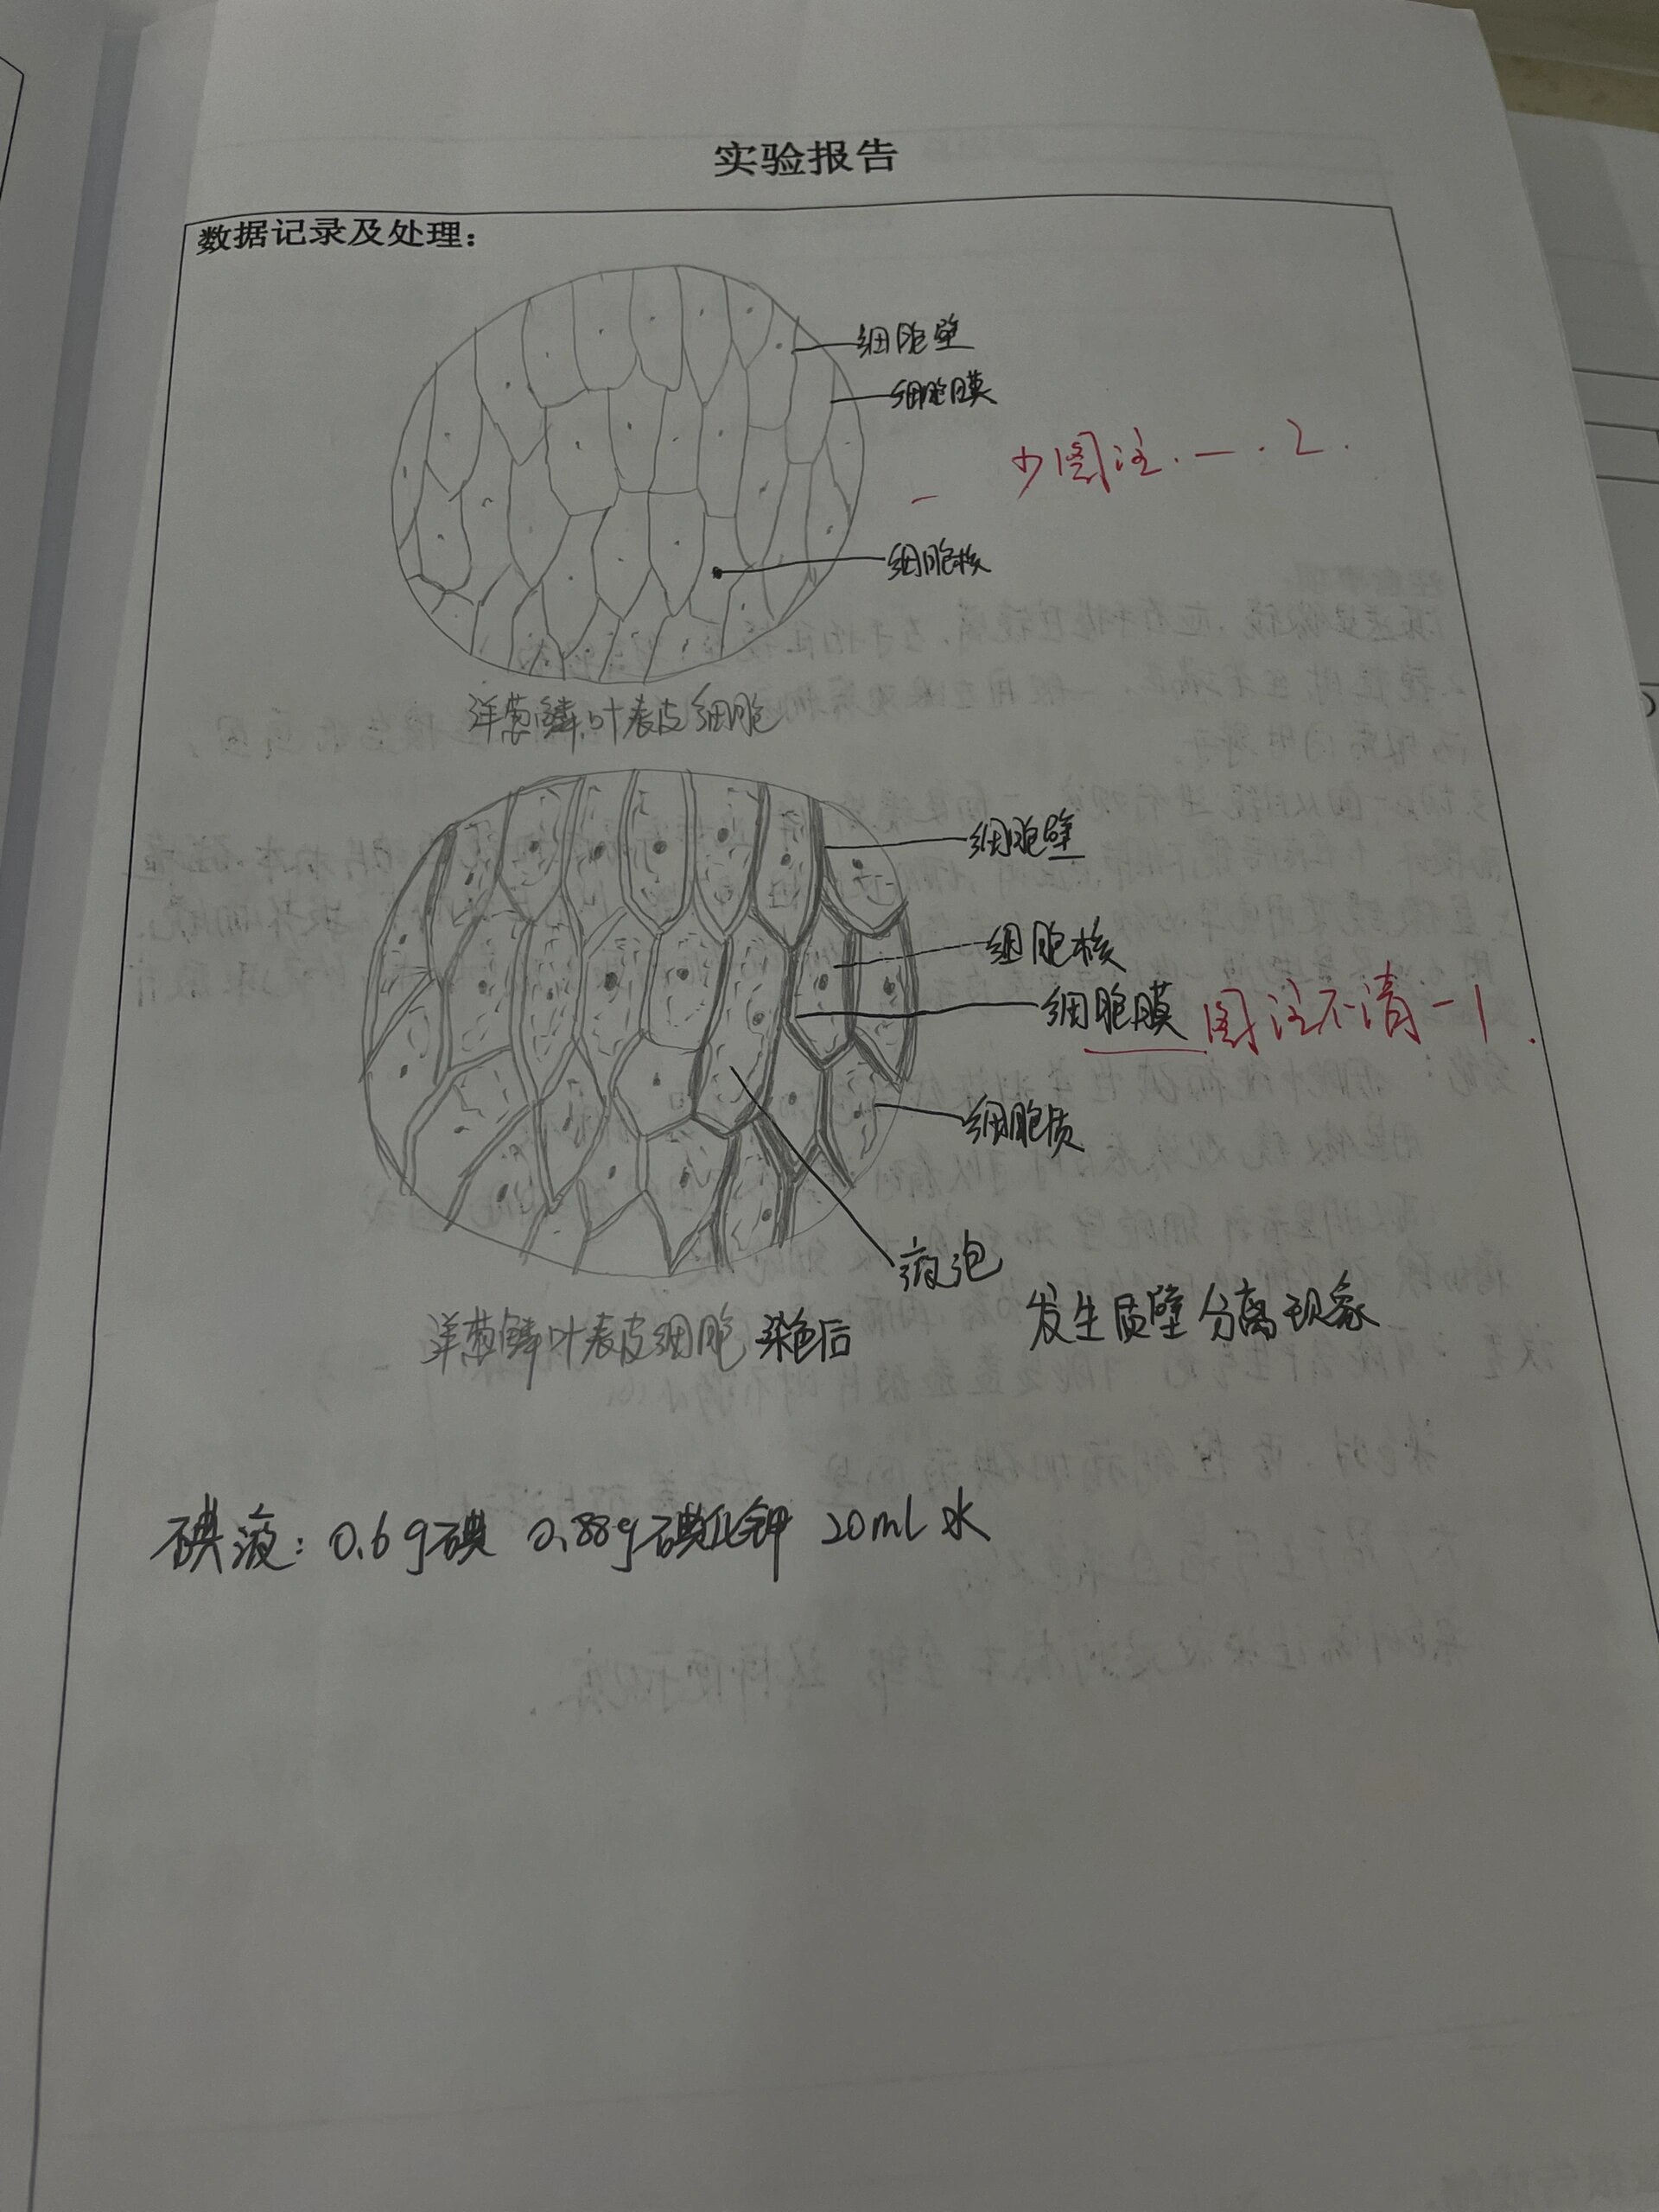 实验报告
数据记录及处理：
细胞壁
细胞膜
少图注.一.2.
细胞核
洋葱鳞叶表皮细胞
细胞壁
细胞核
细胞膜 图注不清-1.
细胞质
液泡
发生质壁分离现象
洋葱鳞叶表皮细胞 染色后
碘液：0.6g碘 0.88g碘化钾 20ml 水